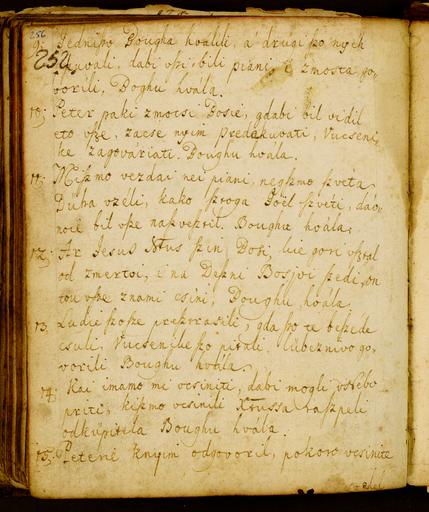 252
9. Jedni ƥo Bougha hvalili, a drugi ƥo nyeh
252 dabi vƥi bili piani, i
vorili, Boghu hvála.
10; Peter paki zmocse Bosie, gdabi bil vidil
eto vƥe, zacse nyim predekuvati, Vucseni,
ke zagovariati. Boughu hvála.
11; Miƥmo vezdai nei piani, negƥmo ƥveta
Duha vzéli, kako ƥvoga Joel ƥveti, dav
noié bil vƥe naƥveƥtil. Boughu hvála,
12; Ar Jesus ƥin Bosi, gori vƥtal
od zmertvi, i na Deƥni Bosjoi ƥedi, on
tou vƥe znami csini, Boughu hvála
13, Ludie ƥoƥe preƥtrasili, gda ƥo te beƥede
csuli, Vucsenike ƥo pitali lübeznivo go,
vorili Boughu hvála,
14; Kai imamo mi vcsiniti, dabi mogli vNebo
priti, kiƥmo vcsinili Xtussa raƥpeli
odkupitela Boughu hvala.
15; Peterie knyim odgovoril, pokoro vcsinite